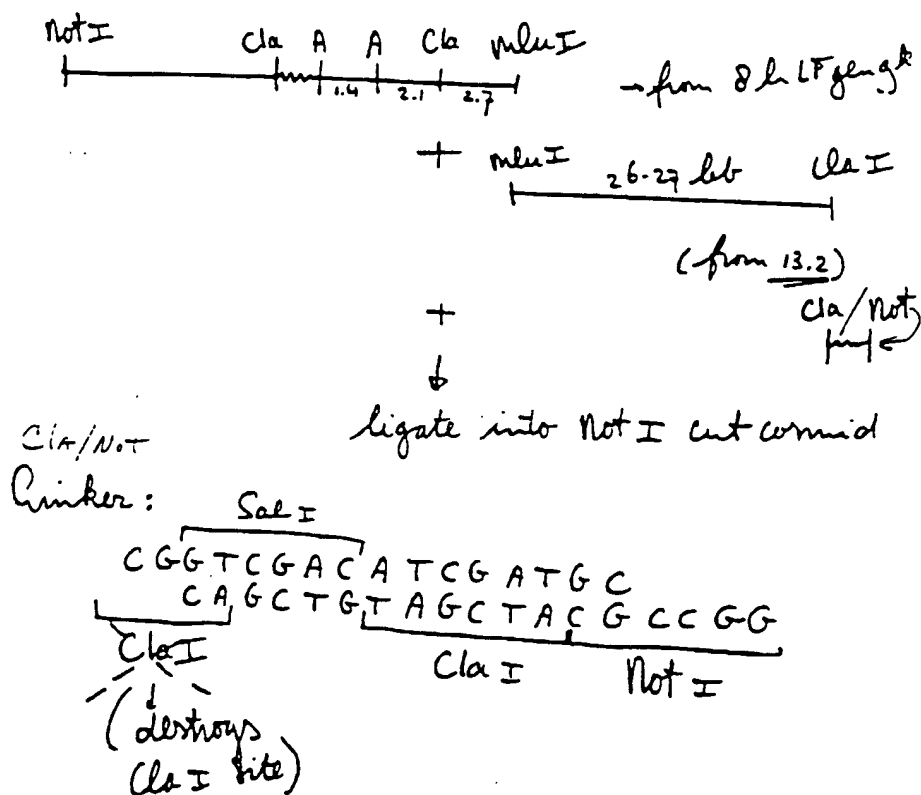 Not I Cla A A Cla mlu I
1.4 2.1 2.7 → from
+ mlu I 26-27 kb Cla I
(from 13.2)
Cla/Not
+
ligate into Not I cut cosmid
Cla/Not
Linker:
Sal I
C G G T C G A C A T C G A T G C
C A G C T G T A G C T A C G C C G G
Cla I Cla I Not I
(destroys
Cla I site)